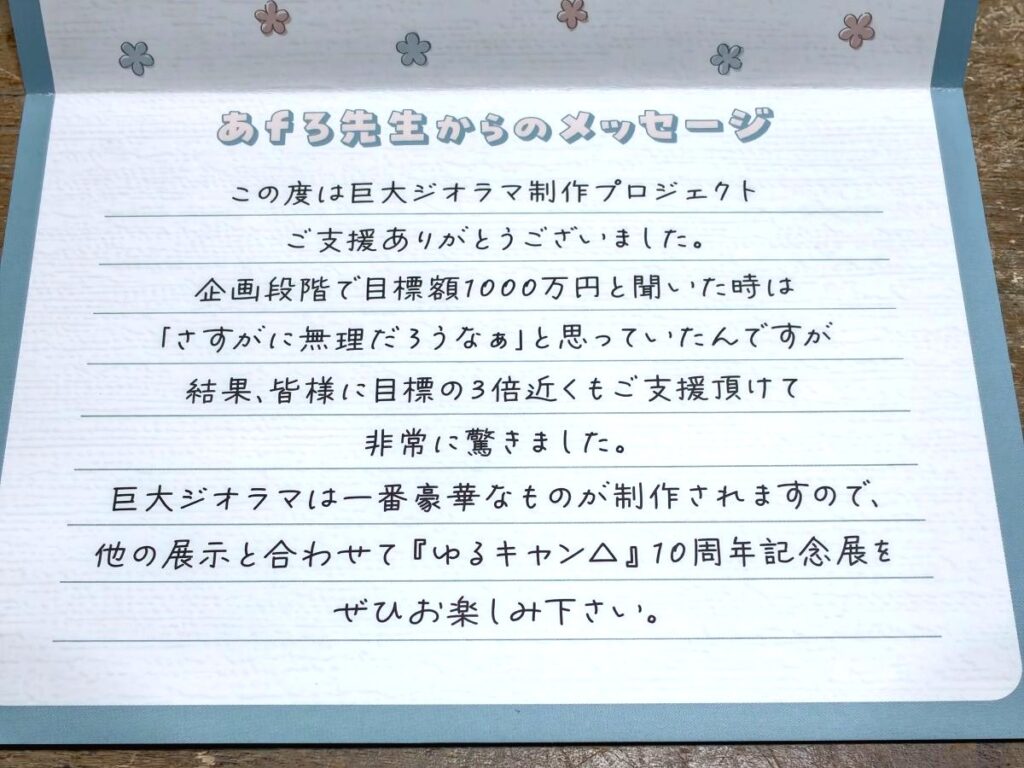 あfろ先生からのメッセージ
この度は巨大ジオラマ制作プロジェクト
ご支援ありがとうございました。
企画段階で目標額1000万円と聞いた時は
「さすがに無理だろうなぁ」と思っていたんですが
結果、皆様に目標の3倍近くもご支援頂けて
非常に驚きました。
巨大ジオラマは一番豪華なものが制作されますので、
他の展示と合わせて『ゆるキャン△』10周年記念展を
ぜひお楽しみ下さい。